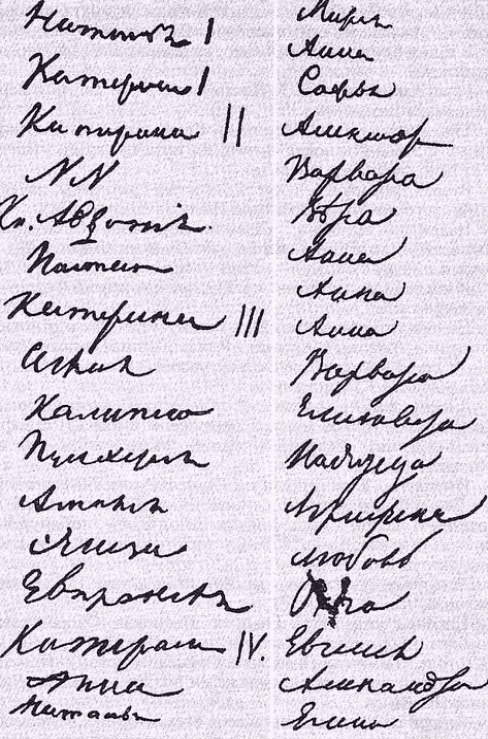 Наталья I
Катерина I
Катерина II
NN
Кн. Авдотія
Настасья
Катерина III
Аглая
Калипсо
Пульхерія
Амалія
Элиза
Евпраксея
Катерина IV.
Анна
Наталья
Марія
Анна
Софья
Александра
Варвара
Вѣра
Анна
Анна
Анна
Варвара
Елизавета
Надежда
Аграфена
Любовь
Ольга
Евгенія
Александра
Елена